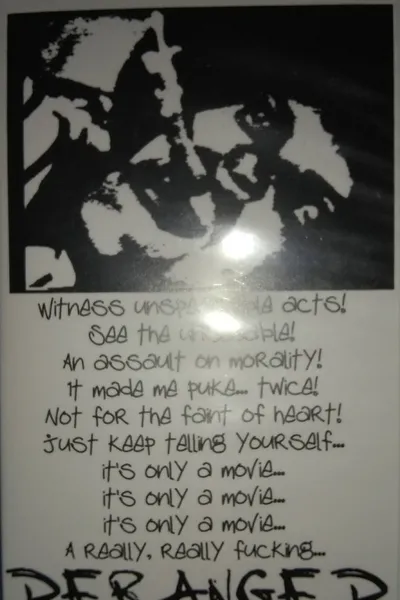 Witness unspeakable acts!
See the unseeable!
An assault on morality!
it made me puke... twice!
Not for the faint of heart!
just keep telling yourself...
it's only a movie...
it's only a movie...
it's only a movie...
A really, really fucking...
DERANGED